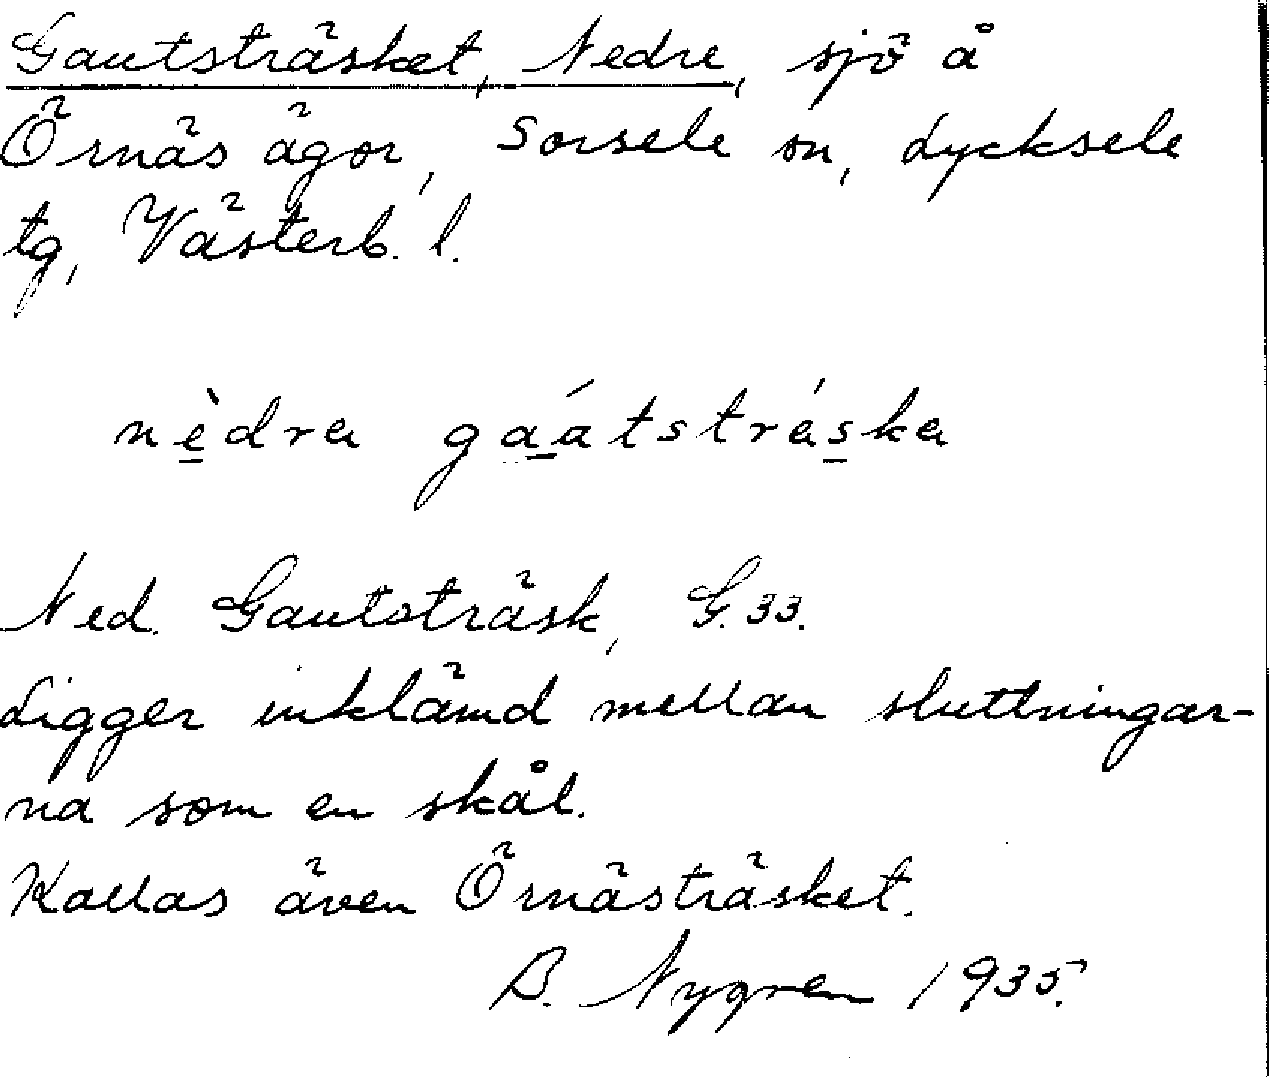 Gautsträsket, Nedre, sjö å
Örnäs ägor, Sorsele sn, Lycksele
tg, Västerb. l.
nèdra gaátstráska
Ned. Gautsträsk, G.33.
Ligger inklämd mellan sluttningar-
na som en skål.
Kallas även Örnästräsket.
B. Nygren 1935.